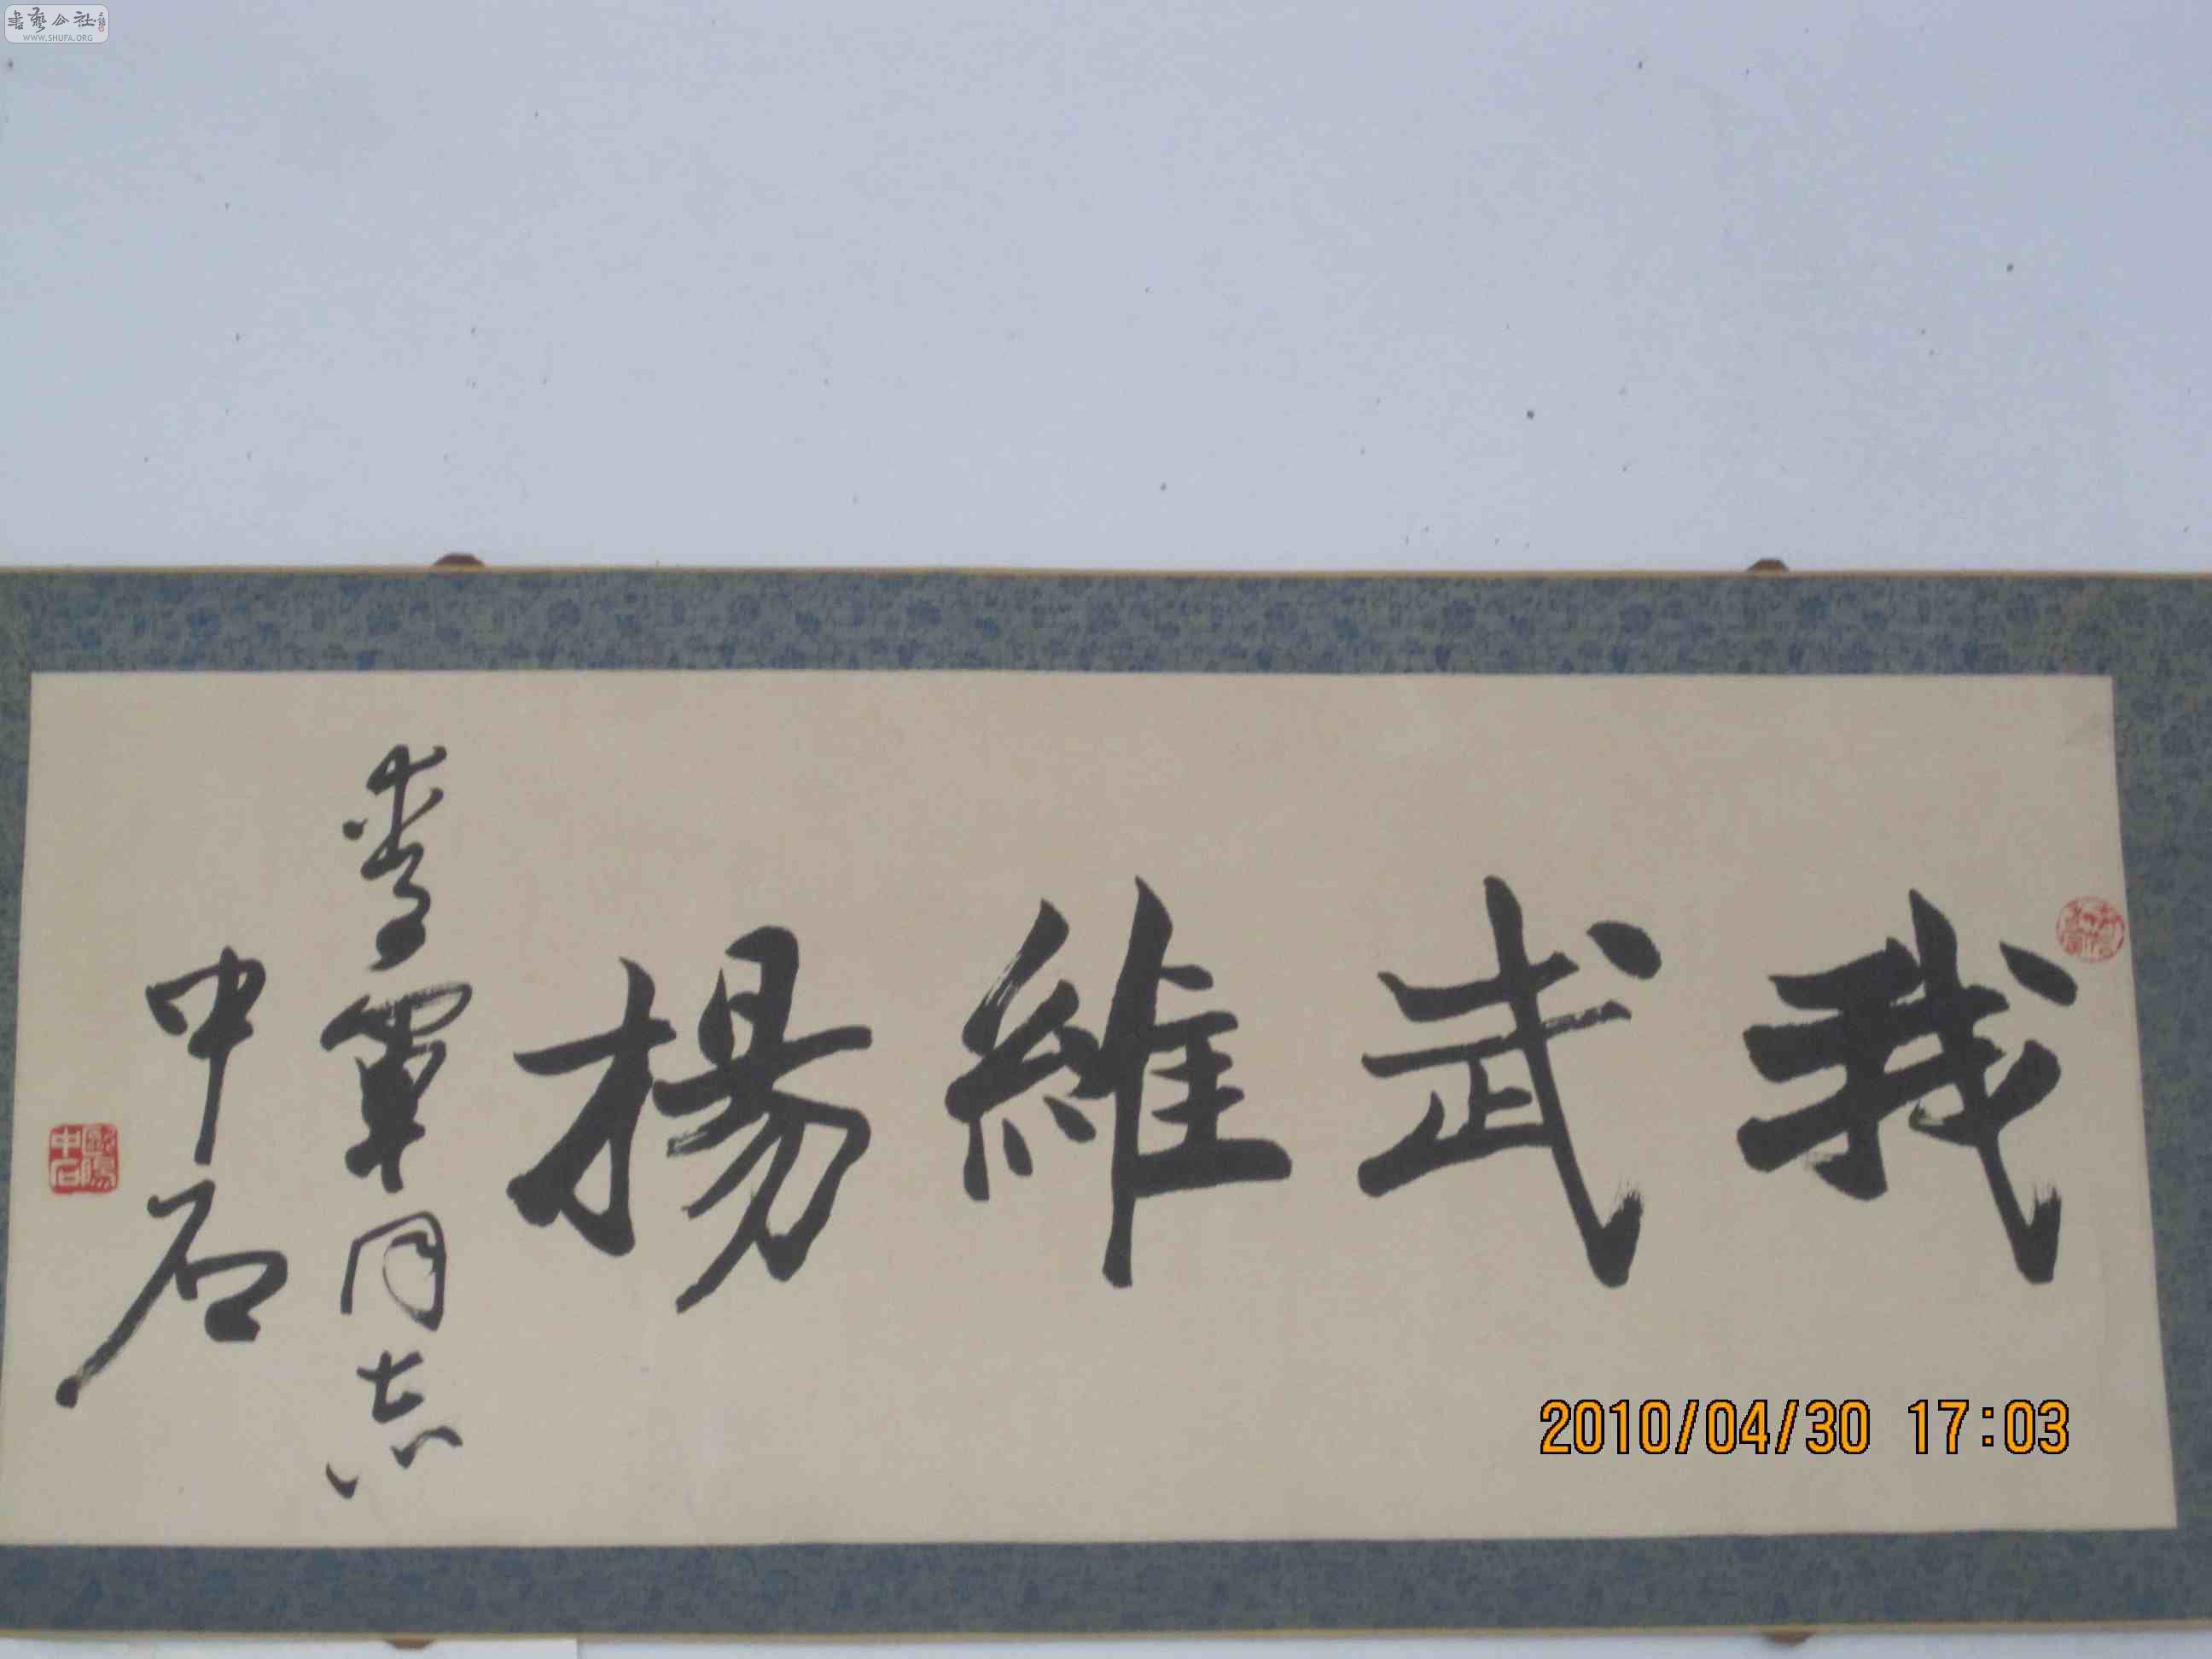 書藝公社
WWW.SHUFA.ORG
我武維揚
軍同志
中石
歐陽中石
2010/04/30 17:03